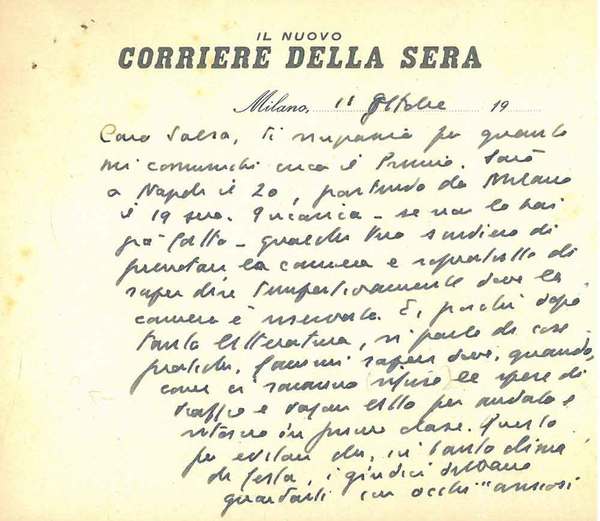 IL NUOVO
CORRIERE DELLA SERA
Milano, 11 Ottobre 19
Caro Salsa, ti ringrazio per quanto
mi comunichi circa il Premio. Sarò
a Napoli il 20, partendo da Milano
il 19 sera. Incarica - se non lo hai
già fatto - qualche tuo di
prenotare la camera e soprattutto di
saper dire tempestivamente dove la
camera è riservata. E, poiché dopo
tanta letteratura, si parla di cose
pratiche, fammi sapere dove, quando,
come ci saranno rifuse le spese di
viaggio e vagon letto per andata e
ritorno in prima classe. Questo
per evitare che, in tanto clima
di festa, i giudici debbano
guardarti con occhi "ansiosi